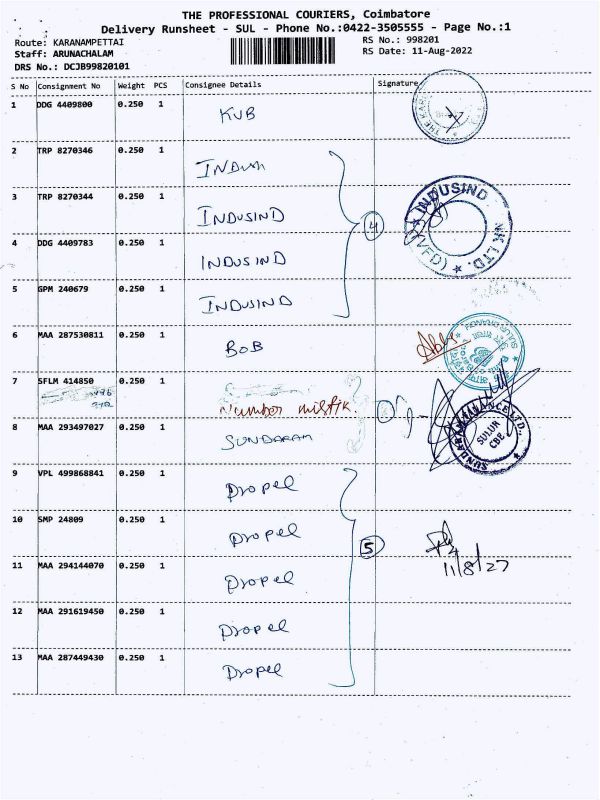 THE PROFESSIONAL COURIERS, Coimbatore
Delivery Runsheet - SUL - Phone No.:0422-3505555 - Page No.:1
Route: KARANAMPETTAI RS No.: 998201
Staff: ARUNACHALAM RS Date: 11-Aug-2022
DRS No.: DCJB99820101
S No Consignment No Weight PCS Consignee Details Signature
1 DDG 4409800 0.250 1 KVB
2 TRP 8270346 0.250 1
3 TRP 8270344 0.250 1 INDUSIND
4
INDUSIND
LTD.
(VFD)
4 DDG 4409783 0.250 1 INDUSIND
5 GPM 240679 0.250 1 INDUSIND
6 MAA 287530811 0.250 1 BOB
7 SFLM 414850 0.250 1
Number mistik.
8 MAA 293497027 0.250 1 SUNDARAM
SULUR
CBE
9 VPL 499868841 0.250 1 Propel
10 SMP 24809 0.250 1 Propel
5
11/8/27
11 MAA 294144070 0.250 1 Propel
12 MAA 291619450 0.250 1 Propel
13 MAA 287449430 0.250 1 Propel